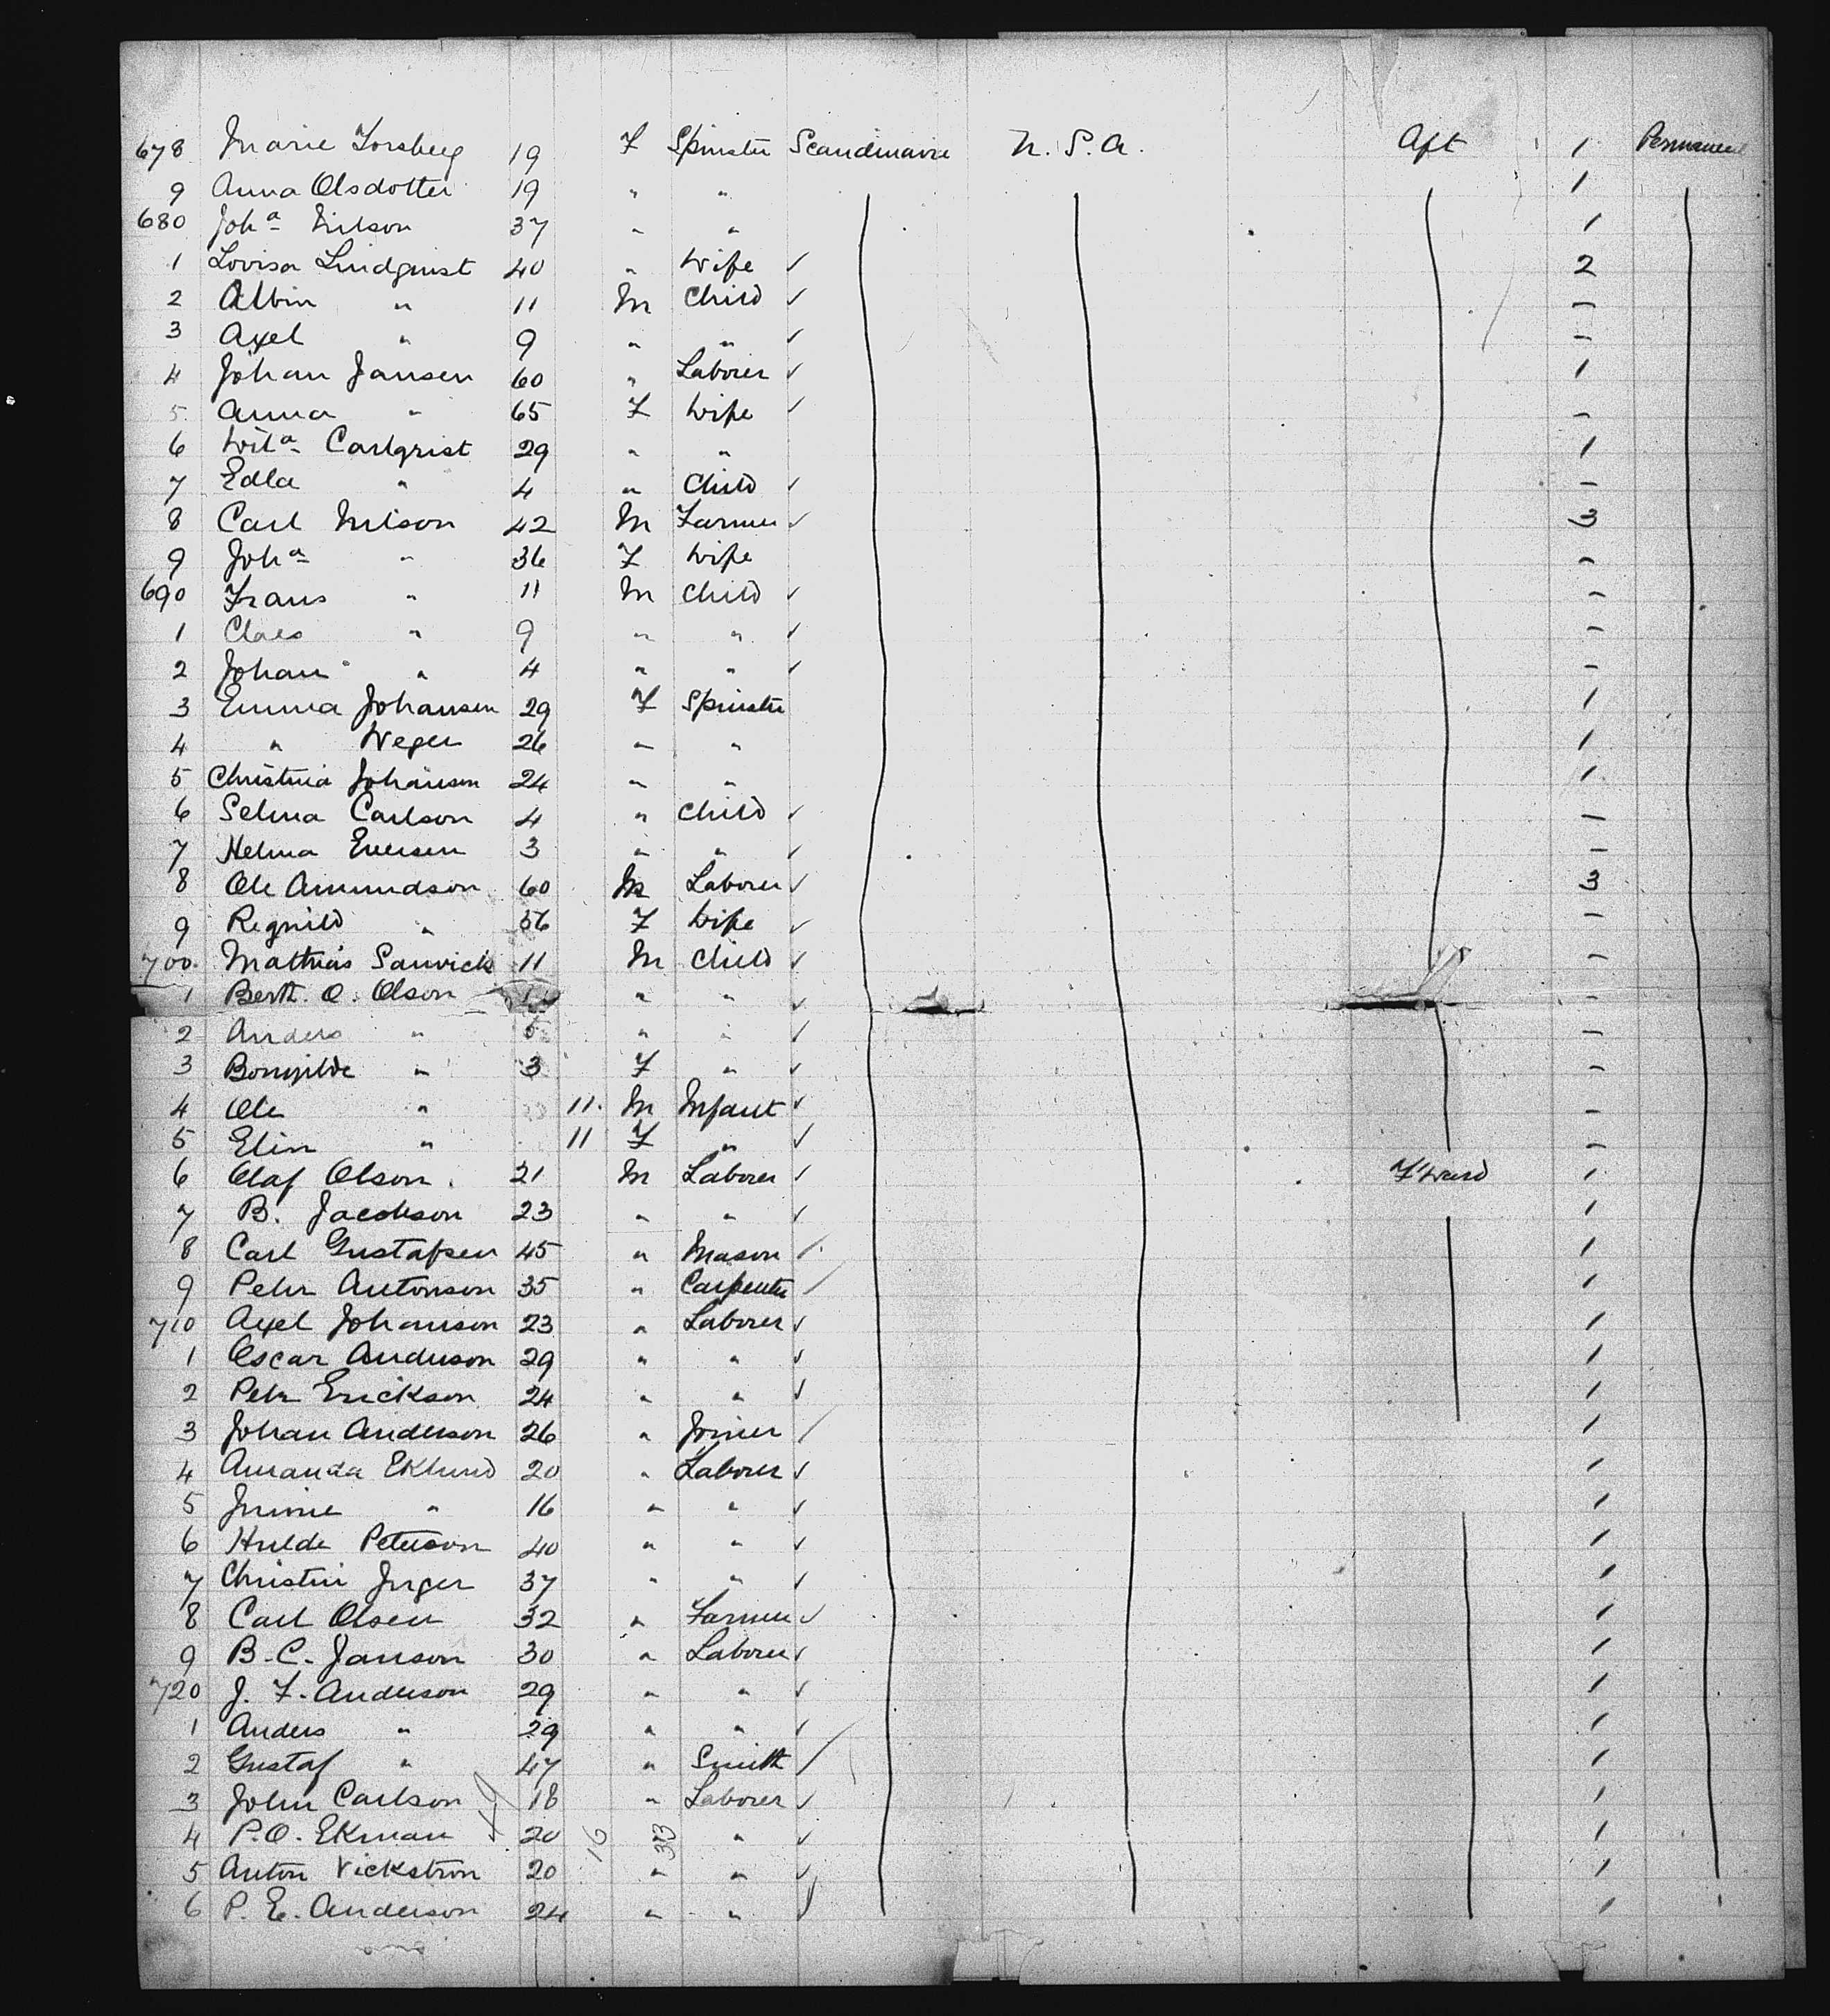 678 Marie Forsberg 19 F Spinster Scandinavia U.S.A. Aft 1 Permanent
9 Anna Olsdotter 19 " " 1
680 Joha Nilson 37 " " 1
1 Lovisa Lindquist 40 " Wife ✓ 2
2 Albin " 11 M Child ✓ –
3 Axel " 9 " " ✓ –
4 Johan Jansen 60 " Laborer ✓ 1
5 Anna " 65 F Wife ✓ –
6 Wila Carlqrist 29 " " 1
7 Edla " 4 " Child ✓ –
8 Carl Nilson 42 M Farmer ✓ 3
9 Joha " 36 F Wife –
690 Frans " 11 M Child ✓ –
1 Claes " 9 " " ✓ –
2 Johan " 4 " " ✓ –
3 Emma Johansen 29 F Spinster 1
4 " Weger 26 " " 1
5 Christina Johansen 24 " " 1
6 Selma Carlson 4 " Child ✓ –
7 Helma Eversen 3 " " ✓ –
8 Ole Amundson 60 M Laborer ✓ 3
9 Regnild " 56 F Wife ✓ –
700 Mathias Sanvick 11 M Child ✓ –
1 Berth. O. Olson " " ✓ –
2 Anders " 5 " " ✓ –
3 Bornzilde " 3 F " ✓ –
4 Ole " 11 M Infant ✓ –
5 Elin " 11 F " ✓ –
6 Olaf Olson 21 M Laborer ✓ F'ward 1
7 B. Jacobson 23 " " ✓ 1
8 Carl Gustafsen 45 " Mason / 1
9 Pehr Antonson 35 " Carpenter / 1
710 Axel Johanson 23 " Laborer ✓ 1
1 Oscar Anderson 29 " " ✓ 1
2 Pehr Erickson 24 " " ✓ 1
3 Johan Anderson 26 " Joiner / 1
4 Amanda Eklund 20 " Laborer ✓ 1
5 " 16 " " ✓ 1
6 Hulda Peterson 40 " " ✓ 1
7 Christin Jnger 37 " " ✓ 1
8 Carl Olsen 32 " Farmer ✓ 1
9 B. C. Janson 30 " Laborer ✓ 1
720 J. F. Anderson 29 " " ✓ 1
1 Anders " 29 " " ✓ 1
2 Gustaf " 47 " Smith / 1
3 John Carlson 18 " Laborer ✓ 1
4 P.O. Ekman 20 16 33 " ✓ 1
5 Anton Vickstrom 20 " " ✓ 1
6 P. E. Anderson 24 " " ✓ 1